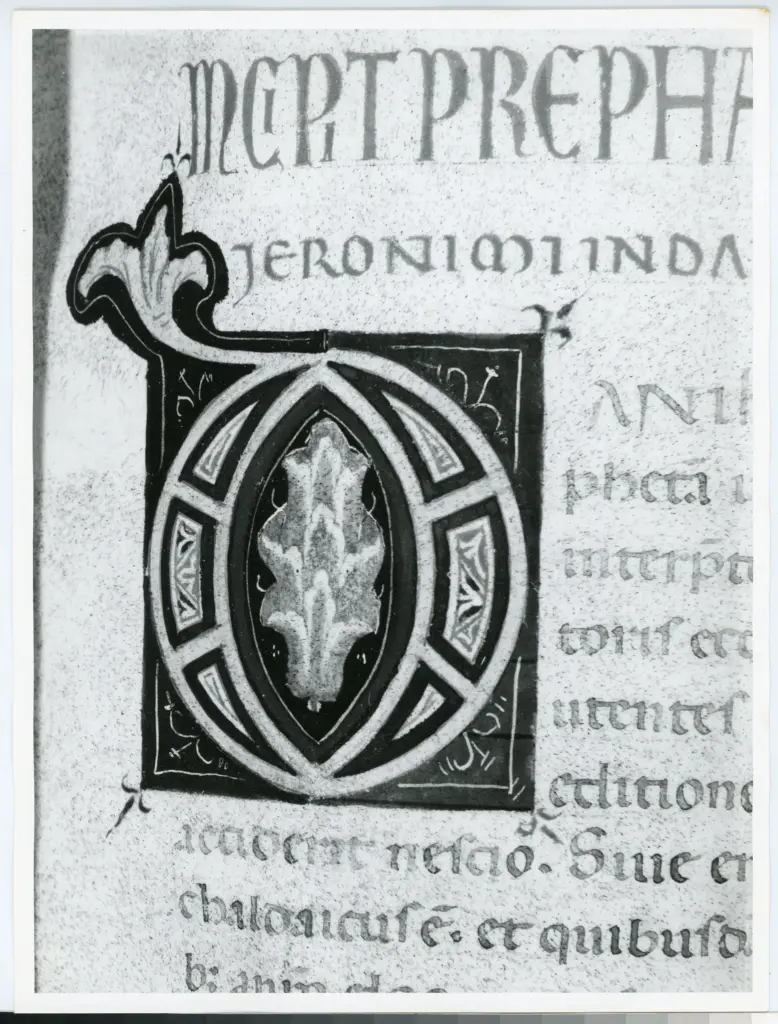 INCIPIT PREPHA
JERONIMI IN DA
DANIh
phetā
interp̄t
toris ecc
utentes
editione
accident nescio. Siue en
chaldaicus ē. et quibusd